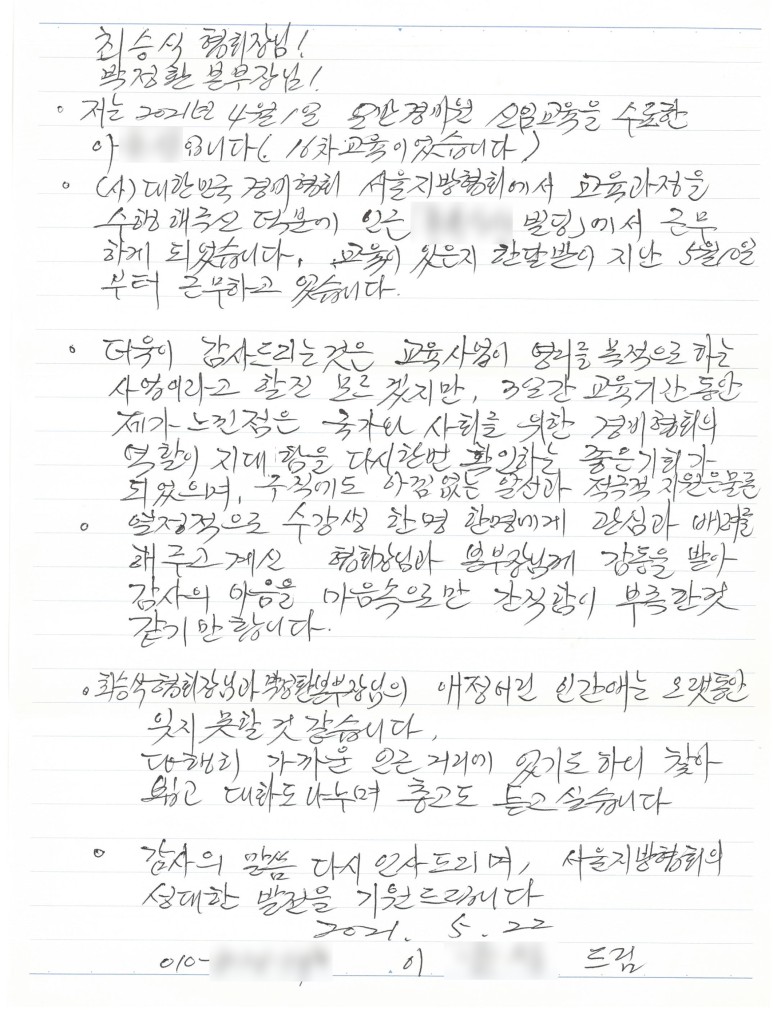 최승식 협회장님!
박정환 본부장님!
◦ 저는 2021년 4월 1일 일반경비원 신임교육을 수료한
이 입니다(. 16차교육이었습니다.)
◦ (사)대한민국 경비협회 서울지방협회에서 교육과정을
수행해주신 덕분에 인근 빌딩」에서 근무
하게 되었습니다. 교육이 있은지 한달반이 지난 5월10일
부터 근무하고 있습니다.
◦ 더욱이 감사드리는것은 교육사업이 영리를 목적으로 하는
사업이라고 할진 모르겠지만, 3일간 교육기간동안
제가 느낀점은 국가와 사회를 위한 경비협회의
역할이 지대함을 다시한번 확인하는 좋은기회가
되었으며, 구직에도 아낌없는 알선과 적극적 지원은물론
◦ 열정적으로 수강생 한명 한명에게 관심과 배려를
해주고계신 협회장님과 본부장님께 감동을 받아
감사의 마음을 마음속으로만 간직함이 부족한것
같기만 합니다.
◦ 최승식협회장님과 박정환본부장님의 애정어린 인간애는 오랫동안
잊지 못할것 같습니다.
다행히 가까운 인근거리에 있기도 하니 찾아
뵙고 대화도나누며 충고도 듣고싶습니다
◦ 감사의 말씀 다시 인사드리며, 서울지방협회의
성대한 발전을 기원드립니다
2021. 5. 22
010- 이 드림